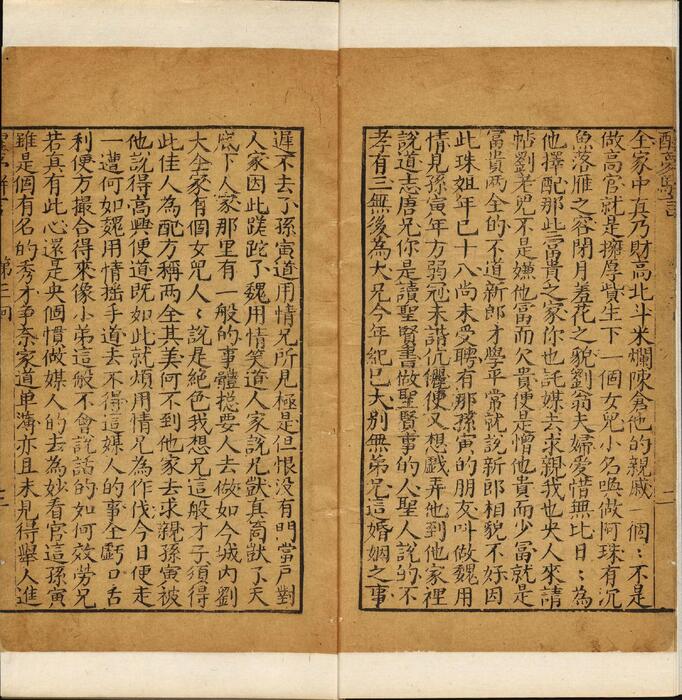 醒夢駢言
全家中真乃財高北斗米爛陳倉他的親戚一個〻不是
做高官就是擁厚貲生下一個女兒小名喚做阿珠有沉
魚落雁之容閉月羞花之貌劉翁夫婦愛惜無比日〻為
他擇配那些富貴之家你也託媒去求親我也央人來請
帖劉老兒不是嫌他富而欠貴便是憎他貴而少富就是
富貴兩全的不道新郎才學平常就說新郎相貌不好因
此珠姐年已十八尚未受聘有那孫寅的朋友叫做魏用
情見孫寅年方弱冠未諧伉儷便又想戲弄他到他家裡
說道志唐兄你是讀聖賢書做聖賢事的人聖人說的不
孝有三無後為大兄今年紀已大別無弟兄這婚姻之事
二
遲不去了孫寅道用情兄所見極是但恨沒有門當戶對
人家因此蹉跎了魏用情笑道人家說兄獃真箇獃了天
底下人家那里有一般的事體搃要人去做如今城內劉
大全家有個女兒人〻說是絕色我想兄這般才子須得
此佳人為配方稱兩全其美何不到他家去求親孫寅被
他說得高興便道既如此就煩用情兄為作伐今日便走
一遭何如魏用情搖手道去不得這媒人的事全虧口舌
利便方撮合得來像小弟這般不會說話的如何效勞兄
若真有此心還是央個慣做媒人的去為妙看官這孫寅
雖是個有名的秀才爭奈家道單薄亦且未見得舉人進
第三回
三